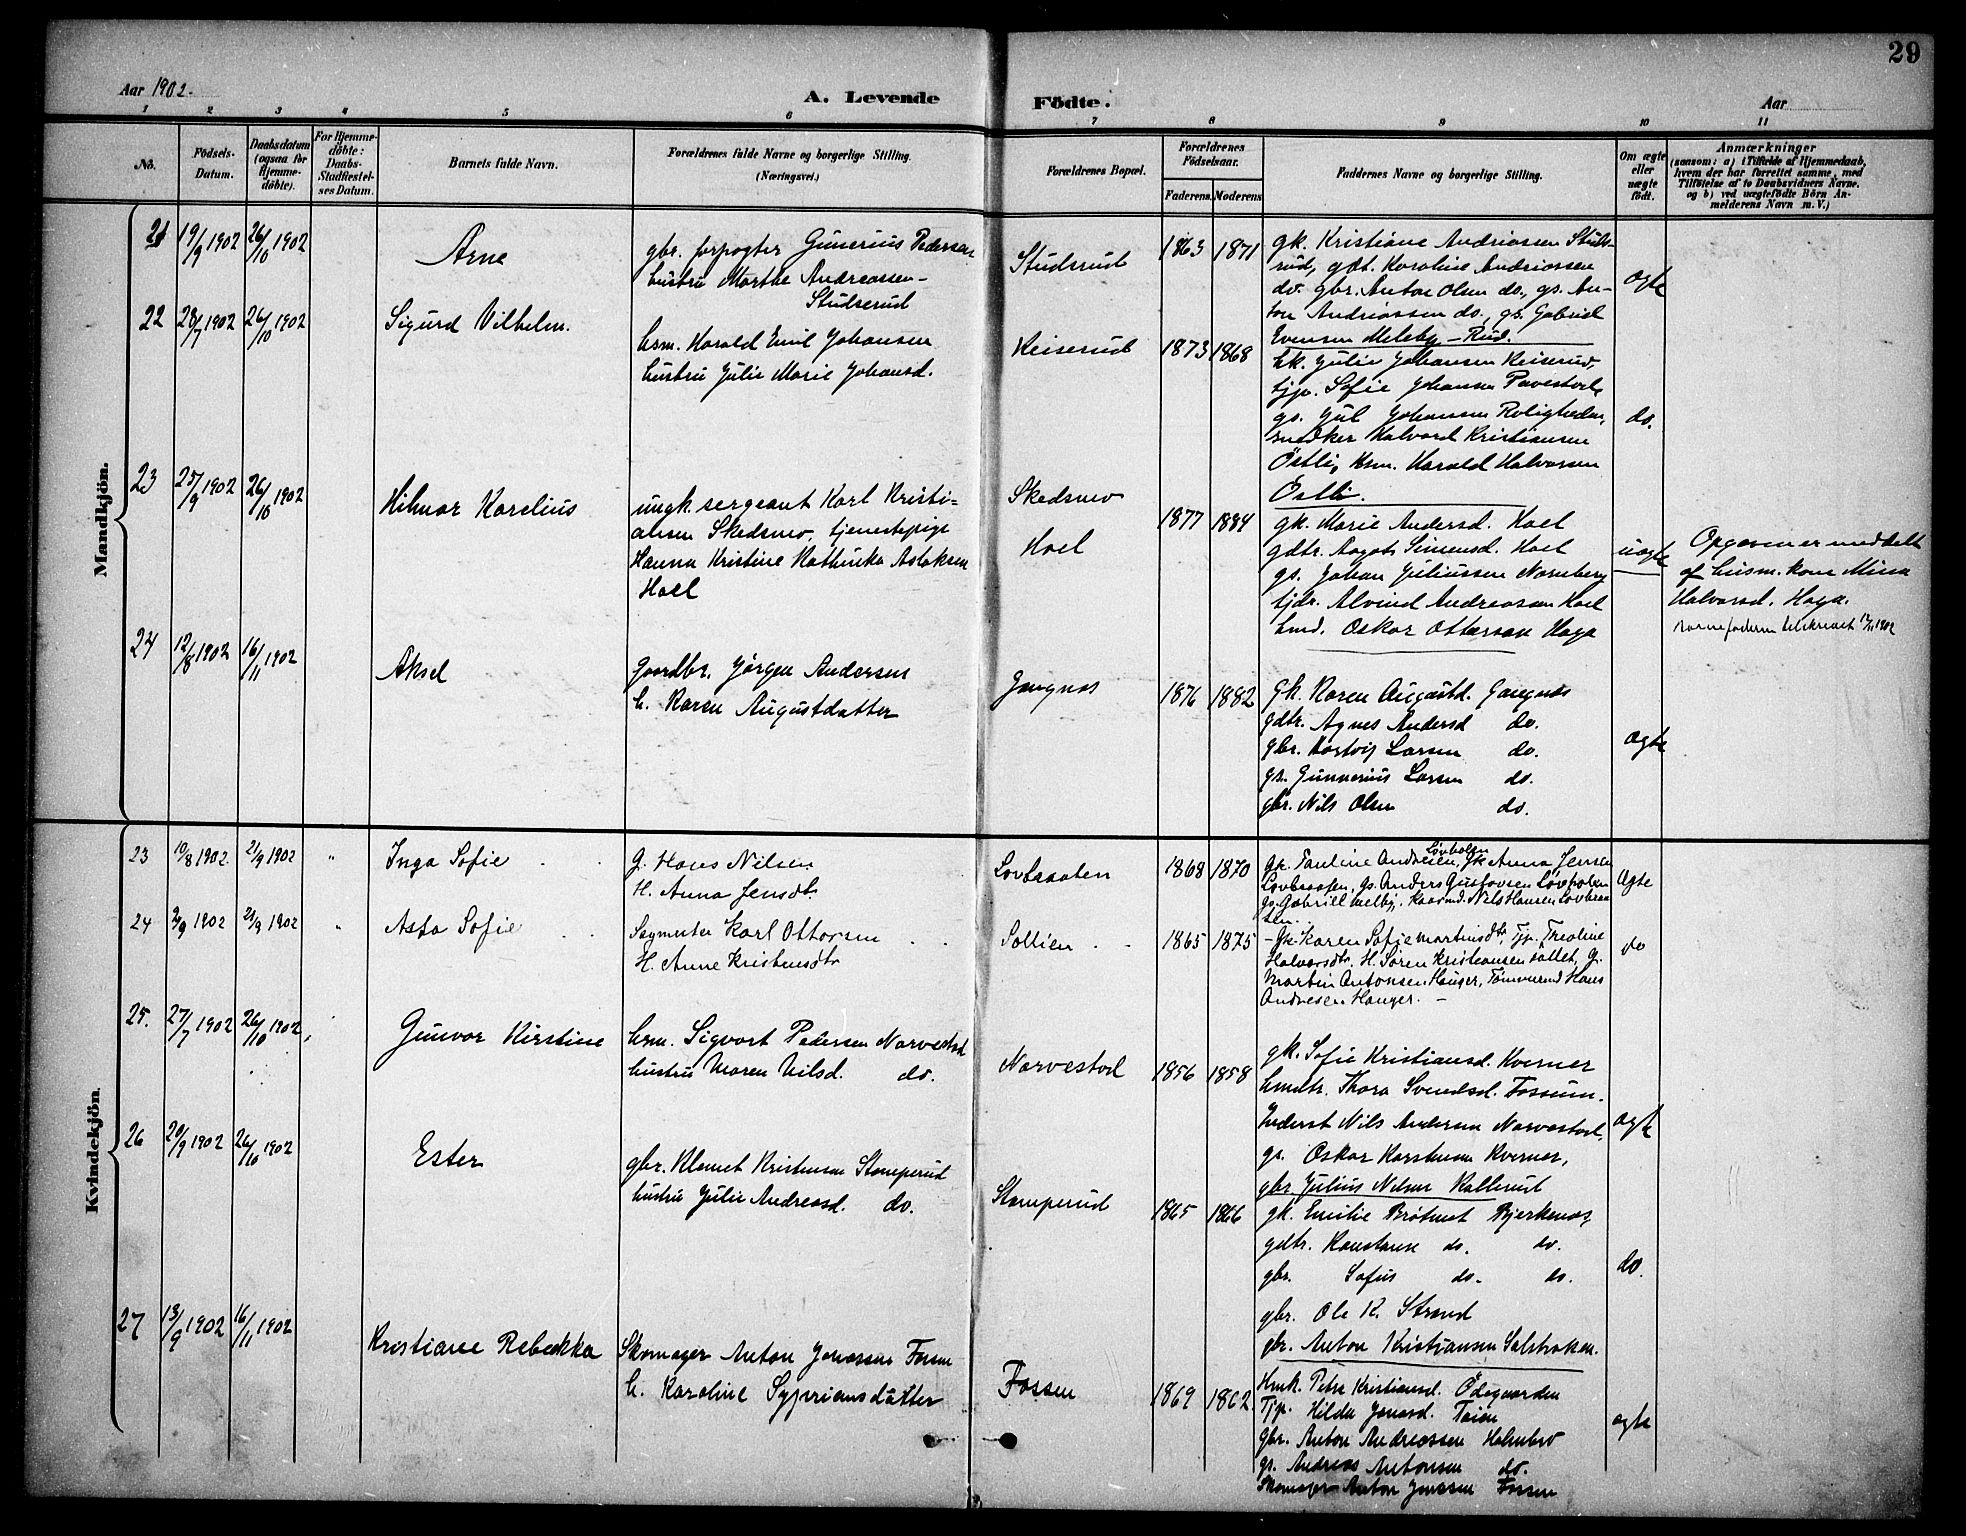 29
Aar 1902.
A. Levende Födte.
Aar
1 2 3 4 5 6 7 8 9 10 11
No.
Födsels-Datum.
Daabsdatum (ogsaa for Hjemme-döbte).
For Hjemme-döbte: Daabs-Stadfestel-ses Datum.
Barnets fulde Navn.
Forældrenes fulde Navne og borgerlige Stilling. (Næringsvei.)
Forældrenes Bopæl.
Forældrenes Födselsaar.
Faderens. Moderens
Faddernes Navne og borgerlige Stilling.
Om ægte eller uægte födt.
Anmærkninger
(saasom: a) i Tilfælde af Hjemmedaab, hvem der har forrettet samme, med Tilföielse af to Daabsvidners Navne, og b) ved uægtefödte Börn An-melderens Navn m. V.)
Mandkjön.
21 19/9 1902 26/10 1902 Arne
gbr. forpagter Gunerius Pedersen
hustru Marthe Andreassen-
Studserud
Studsrud 1863 1871
gk. Kristiane Andriassen Studs-
rud, gdt. Karoline Andriassen
do. gbr. Anton Olsen do., gs. An-
ton Andriassen do., gs. Gabriel
Evensen Meleby-Rud.
ægte
22 28/7 1902 26/10 1902 Sigurd Vilhelm.
hsm. Harald Emil Johansen
hustru Julie Marie Johansd.
Keiserud 1873 1868
hk. Julie Johansen Keiserud,
tjp. Sofie Johansen
gs. Jul Johansen Roligheden,
snedker Halvard Kristiansen
Østli, hsm. Harald Halvorsen
Østli.
do.
23 25/9 1902 26/10 1902 Hilmar Karelius
ungk. sergeant Karl Kristi-
ansen Skedsmo, tjenestepige
Hanna Kristine Kathinka Aslaksen
Hoel
Skedsmo
Hoel
1877 1884
gk. Marie Andersd. Hoel
gdtr. Aagot Simensd. Hoel
gs. Johan Juliussen Nornberg
tjdr. Alvind Andreassen Hoel
Oskar Ottersen Haga
uægte
Opgaven er meddelt
af husm. kone Mina
Halvorsd. Haga.
Barnefaderen tilskrevet 17/11 1902
24 12/8 1902 16/11 1902 Aksel
Gaardbr. Jørgen Andersen
h. Karen Augustdatter
Gangnæs 1876 1882
Gk. Karen Augustd. Gangnæs
gdtr. Agnes Andersd do.
gbr. Hartvig Larsen do.
gs. Gunnerius Larsen do.
gbr. Nils Olsen do.
ægte
Kvindekjön.
23 10/8 1902. 21/9 1902 " Inga Sofie
G. Hans Nilsen
H. Anna Jensdtr.
Lovbraaten 1868 1870
Løvholen
Gk. Pauline Andresen, Gk Anna Jensen
Lovbraaten, Gs. Anders Gustavsen Løvholen
Gs. Gabriel Melby, Nils Hansen Lovbraa-
ten.
Ægte
24 2/9 1902 21/9 1902 " Asta Sofie
Sagmester Karl Ottersen
H. Anne Kristensdtr
Sollien 1865 1875
- Gk. Karen Sofie Martinsdtr, Tjp. Theoline
Halvorsdtr. H. Søren Kristiansen Sollet, G.
Martin Antonsen Hauger, Tømmermd Hans
Andresen Hauger. -
do
25. 27/7 1902 26/10 1902, Gunvor Kirstine
hsm. Sigvart Pedersen Narvestad
hustru Maren Nilsd. do.
Narvestad 1856 1858
gk. Sofie Kristiansd. Kverner
Thora Svendsd. Fossum.
Inderst Nils Andersen Narvestad,
gs. Oskar Karstensen Kverner,
gbr. Julius Nilsen Kallerud
ægte
26 20/9 1902 26/10 1902 Ester
gbr. Klemet Kristensen Stomperud
hustru Julie Andreasd. do.
Stomperud 1865 1866
gk. Emilie Brøtmet Bjerkenæs,
gdtr. Konstanse do. do.
gbr. Sofus do. do.
gbr. Ole K. Strand
gbr. Anton Kristiansen Solstroken.
do.
27 13/9 1902 16/11 1902 Kristiane Rebekka
Skomager Anton Johnsen Fossen
h. Karoline Sypriansdatter
Fossen 1869 1862
Hmk. Petra Kristiansd. Ødegaarden
Tjp. Hilda Jonasd. Toien
Gbr. Anton Andreassen Holmbro
gs. Andreas Antonsen do.
Skomager Anton Jenssen Fossen
ægte